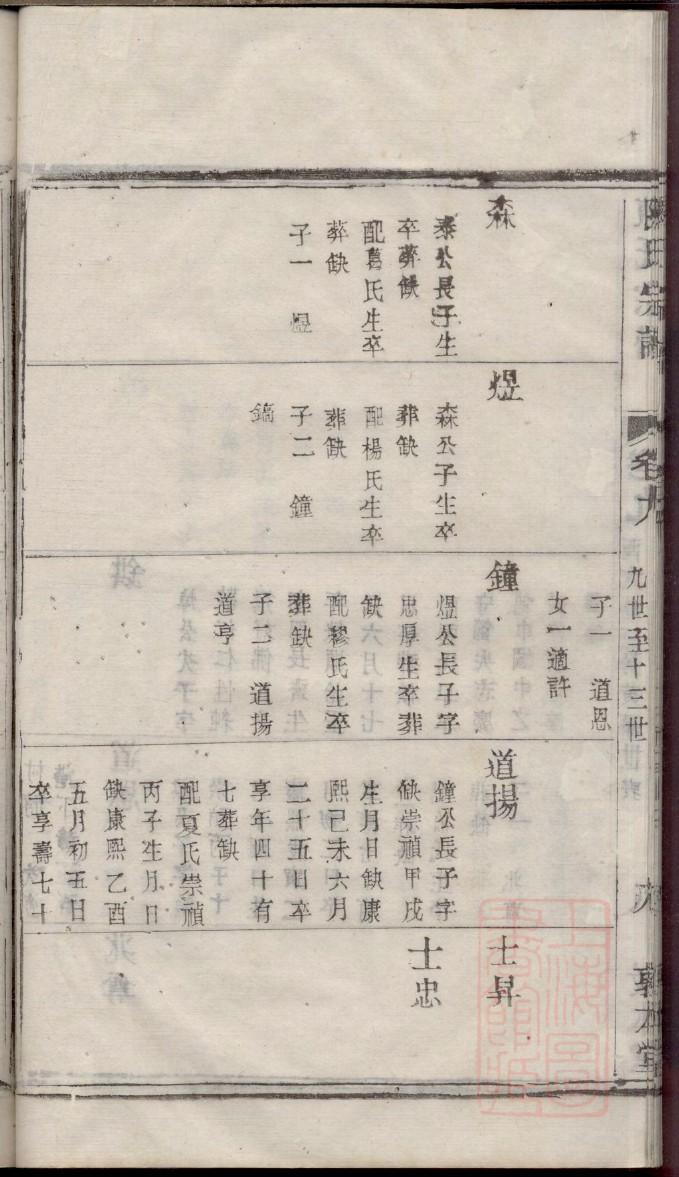 陳氏宗譜
卷九
九世至十三世
敦本堂
森
泰公長子生
卒葬缺
配葛氏生卒
葬缺
子一 煜
煜
森公子生卒
葬缺
配楊氏生卒
葬缺
子二 鐘
鎬
子一 道恩
女一適許
鐘
煜公長子字
忠厚生卒葬
缺
配穆氏生卒
葬缺
子二 道揚
道亨
道揚
鐘公長子字
缺崇禎甲戌
生月日缺康
熙己未六月
二十五日卒
享年四十有
七葬缺
配夏氏崇禎
丙子生月日
缺康熙乙酉
五月初五日
卒享壽七十
士昇
士忠